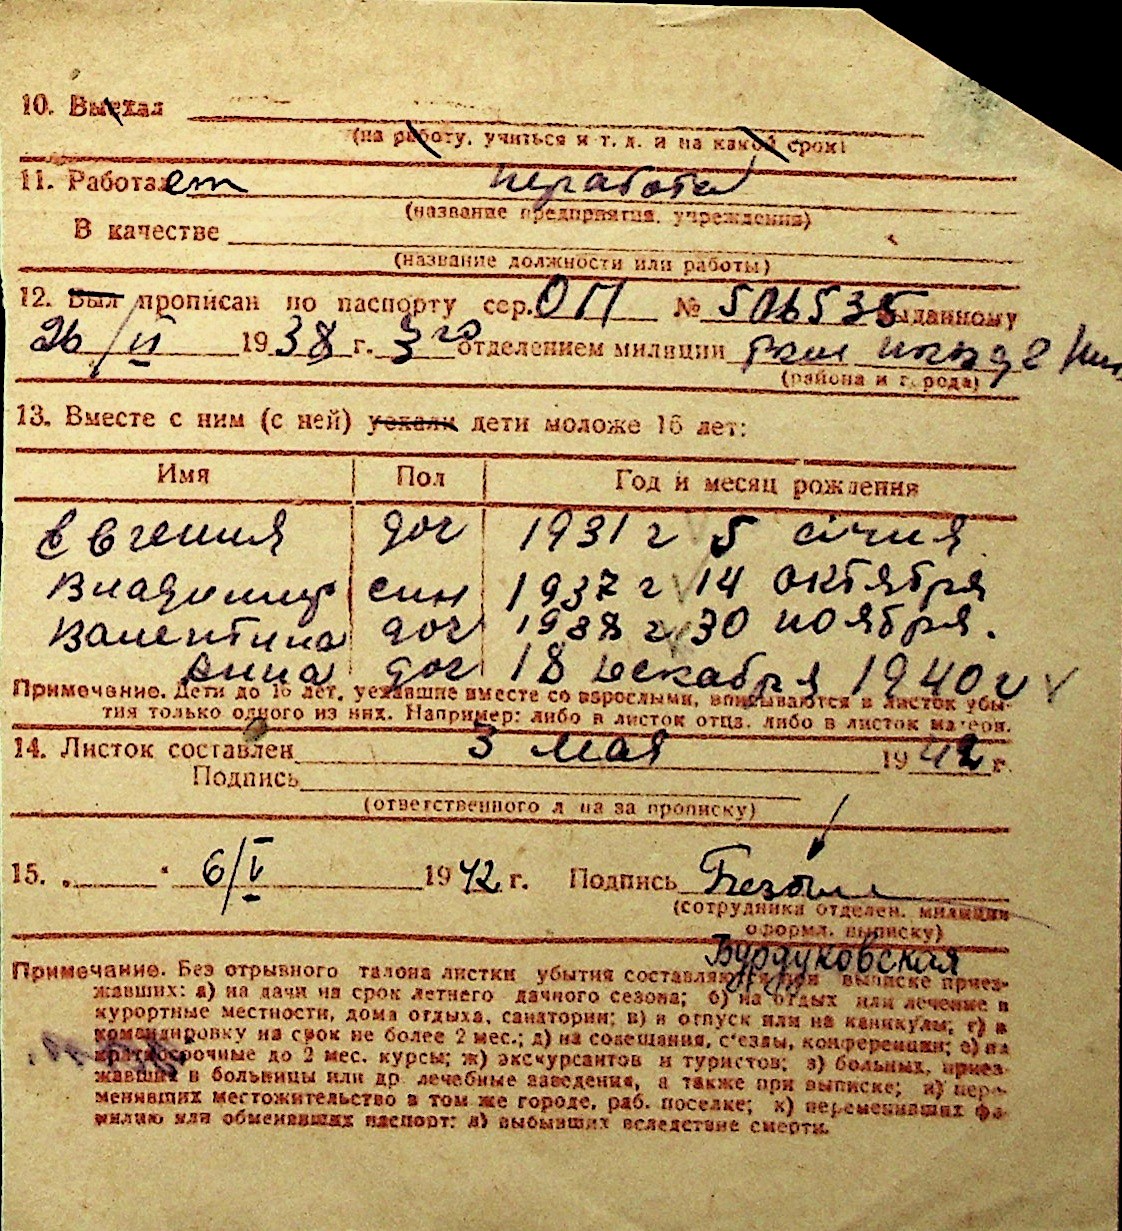 10. Выехал
(на работу, учиться и т. д. и на какой срок)
11. Работает неработа
(название предприятия, учреждения)
В качестве
(название должности или работы)
12. Был прописан по паспорту сер. ОП № 506535 выданному
26/VI 1938 г. 3го отделением милиции
(района и города)
13. Вместе с ним (с ней) уехали дети моложе 16 лет:
Имя Пол Год и месяц рождения
Евгения доч 1931 г 5 січня
Владимир син 1937 г 14 октября
Валентина доч 1938 г 30 ноября.
Анна доч 18 декабря 1940 г
Примечание. Дети до 16 лет, уехавшие вместе со взрослыми, вписываются в листок убы-
тия только одного из них. Например: либо в листок отца, либо в листок матери.
14. Листок составлен 3 мая 1942 г.
Подпись
(ответственного лица за прописку)
15. 6/V 1942 г. Подпись
(сотрудника отделен. милиции
оформл. выписку)
Бурдуковская
Примечание. Без отрывного талона листки убытия составляются при выписке приез-
жавших: а) на дачи на срок летнего дачного сезона; б) на отдых или лечение в
курортные местности, дома отдыха, санатории; в) в отпуск или на каникулы; г) в
командировку на срок не более 2 мес.; д) на совещания, с'езды, конференции; е) на
краткосрочные до 2 мес. курсы; ж) экскурсантов и туристов; з) больных, приез-
жавших в больницы или др. лечебные заведения, а также при выписке; и) пере-
менивших местожительство в том же городе, раб. поселке; к) переменивших фа-
милию или обменявших паспорт; л) выбывших вследствие смерти.